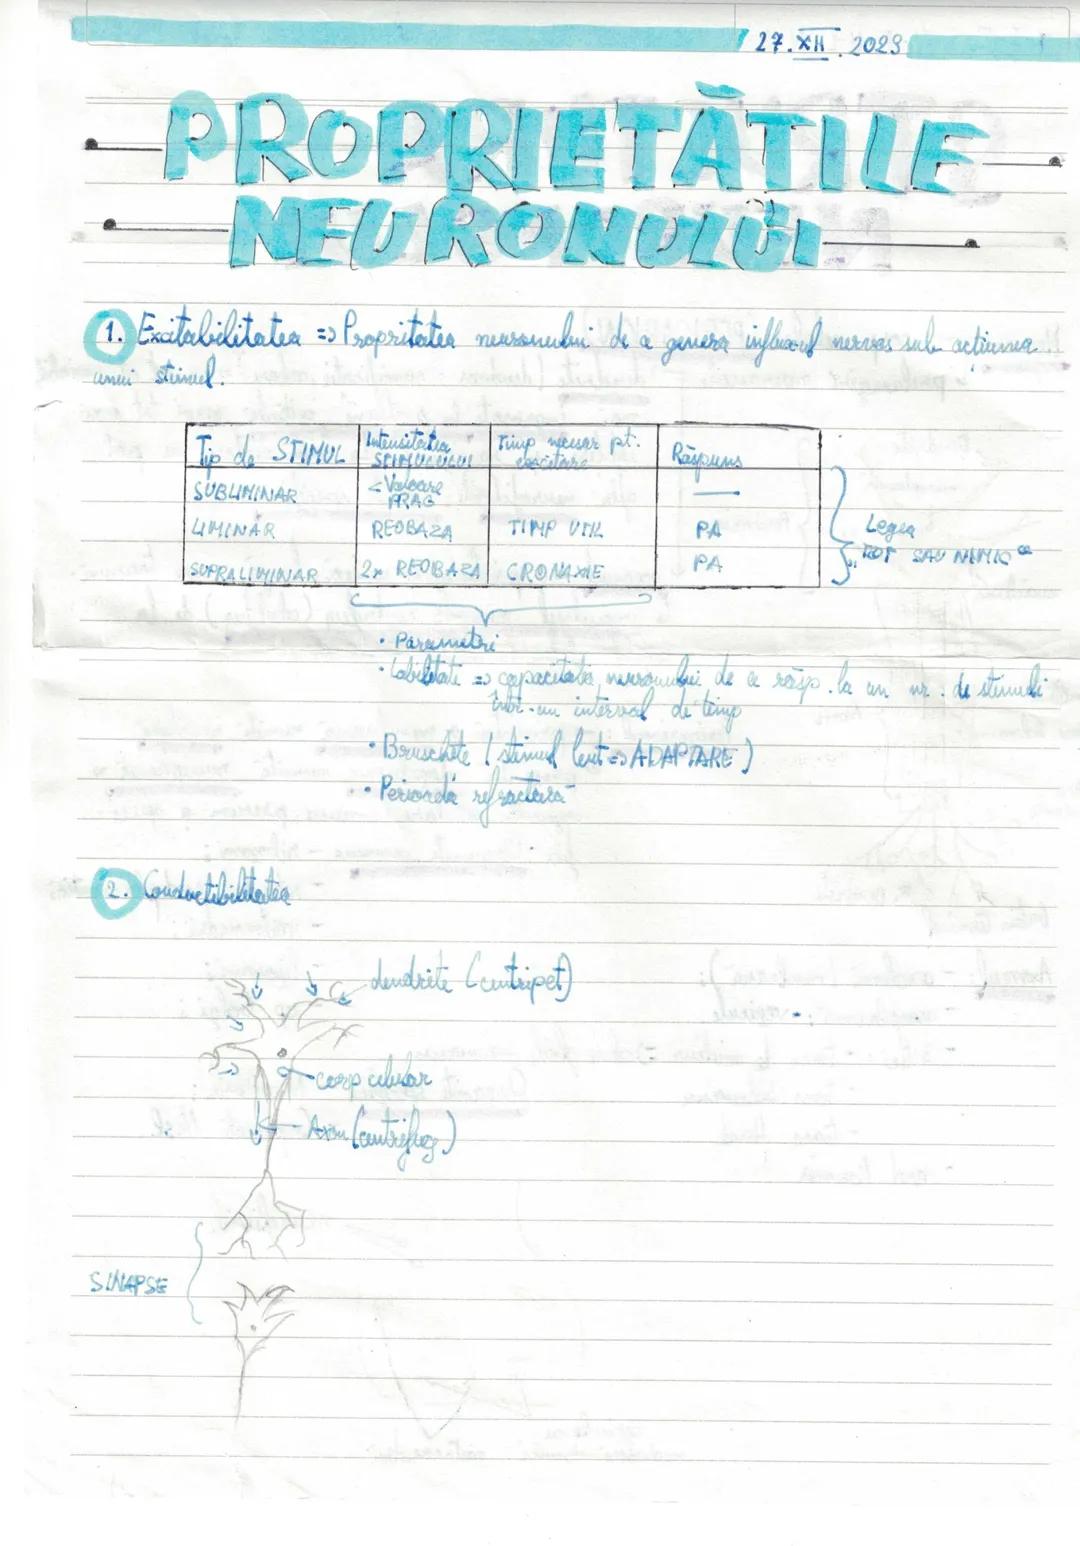 27.XII.2023
PROPRIETĂȚILE
NEURONULUI
1. Excitabilitatea => Propritatea neuronului de a genera influxul nervos sub acțiunea
unui stimul.
Tip de STIMUL | Intensitatea STIMULULUI | Timp necesar pt. excitare | Răspuns
SUBLIMINAR | < Valoare PRAG | | —
LIMINAR | REOBAZA | TIMP UTIL | PA
SUPRALIMINAR | 2x REOBAZA | CRONAXIE | PA
Legea
„TOT SAU NIMIC“
• Parametri
• Labilitate => capacitatea neuronului de a răsp. la un nr. de stimuli
într-un interval de timp
• Bruschețe (stimul lent => ADAPTARE)
• Perioadă refractară
2. Conductibilitatea
dendrite (centripet)
corp celular
Axon (centrifug)
SINAPSE